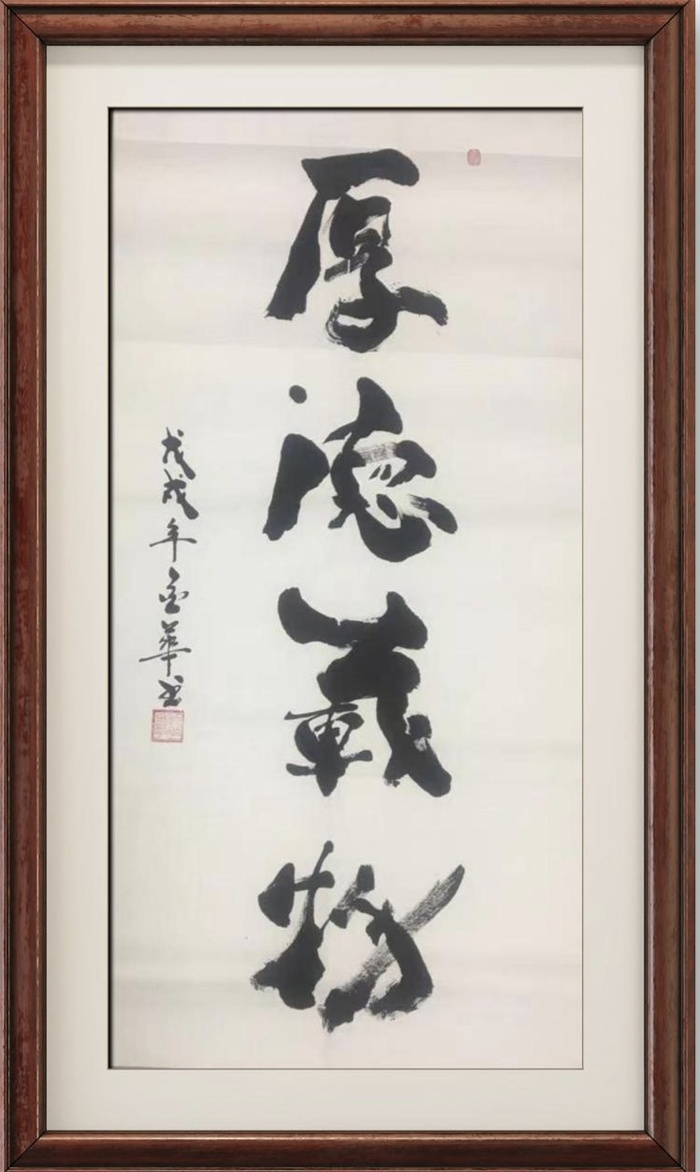 厚德載物
戊戌年金華书